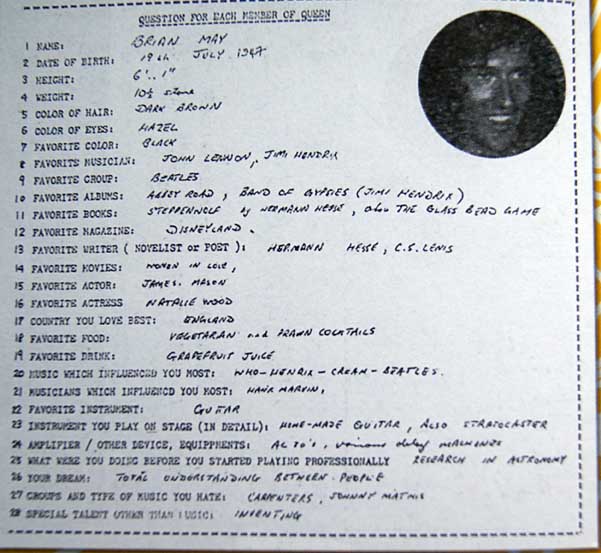 QUESTION FOR EACH MEMBER OF QUEEN
1 NAME: BRIAN MAY
2 DATE OF BIRTH: 19th JULY 1947
3 HEIGHT: 6'.. 1"
4 WEIGHT: 10½ stone
5 COLOR OF HAIR: DARK BROWN
6 COLOR OF EYES: HAZEL
7 FAVORITE COLOR: BLACK
8 FAVORITE MUSICIAN: JOHN LENNON, JIMI HENDRIX
9 FAVORITE GROUP: BEATLES
10 FAVORITE ALBUMS: ABBEY ROAD, BAND OF GYPSIES (JIMI HENDRIX)
11 FAVORITE BOOKS: STEPPENWOLF by HERMANN HESSE, also THE GLASS BEAD GAME
12 FAVORITE MAGAZINE: DISNEYLAND.
13 FAVORITE WRITER ( NOVELIST or POET ): HERMANN HESSE, C.S. LEWIS
14 FAVORITE MOVIES: WOMEN IN LOVE,
15 FAVORITE ACTOR: JAMES MASON
16 FAVORITE ACTRESS NATALIE WOOD
17 COUNTRY YOU LOVE BEST: ENGLAND
18 FAVORITE FOOD: VEGETARIAN and PRAWN COCKTAILS
19 FAVORITE DRINK: GRAPEFRUIT JUICE
20 MUSIC WHICH INFLUENCED YOU MOST: WHO-HENRIX-CREAM-BEATLES.
21 MUSICIANS WHICH INFLUENCD YOU MOST: HANK MARVIN,
22 FAVORITE INSTRUMENT: GUITAR
23 INSTRUMENT YOU PLAY ON STAGE (IN DETAIL): HOME-MADE GUITAR, ALSO STRATOCASTER
24 AMPLIFIER / OTHER DEVICE, EQUIPPMENTS: AC 30's, various delay MACHINES
25 WHAT WERE YOU DOING BEFORE YOU STARTED PLAYING PROFESSIONALLY RESEARCH IN ASTRONOMY
26 YOUR DREAM: TOTAL UNDERSTANDING BETWEEN PEOPLE
27 GROUPS AND TYPE OF MUSIC YOU HATE: CARPENTERS, JOHNNY MATHIS
28 SPECIAL TALENT OTHER THAN MUSIC: INVENTING